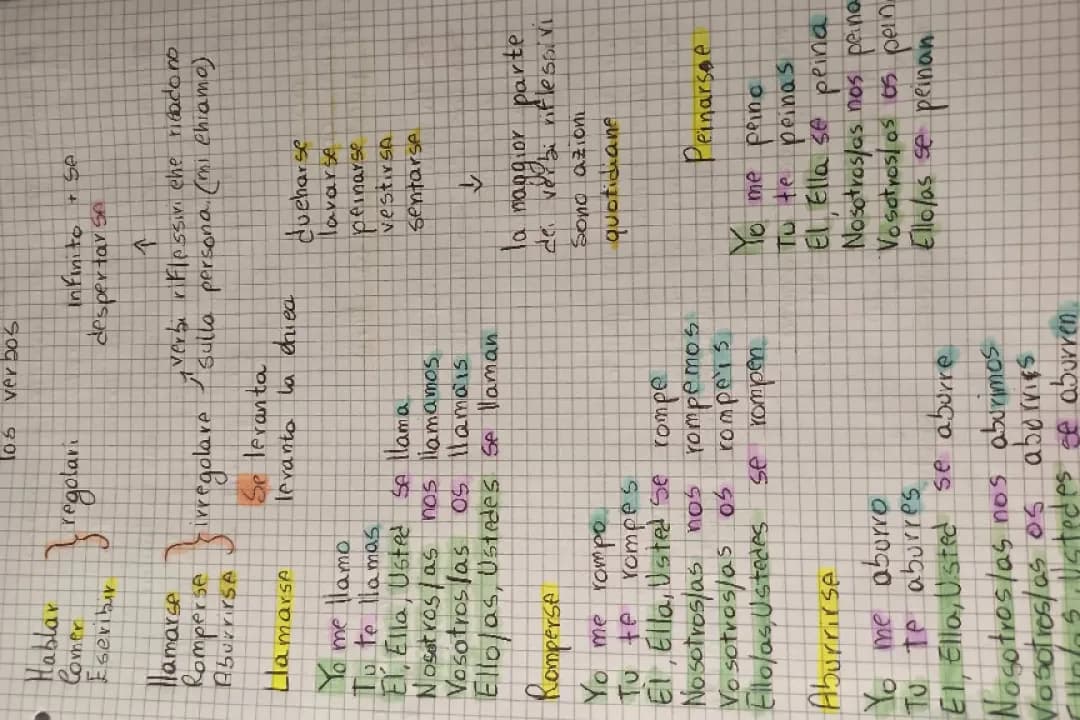 los verbos
Hablar
Comer } regolari
Escribir
Infinito + se
despertarse
↑
llamarse
Romperse } irregolare → verbi riflessivi che ricadono
Aburrirse sulla persona. (mi chiamo)
Se levanta
levanto la
ducharse
lavarse
peinarse
vestirse
sentarse
↓
la maggior parte
dei verbi riflessivi
sono azioni
quotidiane
Llamarse
Yo me llamo
Tu te llamas
El, Ella, Usted se llama
Nosotros/as nos llamamos
Vosotros/as os llamais
Ello/as, Ustedes se llaman
Romperse
Yo me rompo
Tu te rompes
El, Ella, Usted se rompe
Nosotros/as nos rompemos
Vosotros/as os rompeis
Ello/as, Ustedes se rompen
Peinarse
Yo me peino
Tu te peinas
El, Ella se peina
Nosotros/as nos peina
Vosotros/as os pein
Ello/as se peinan
Aburrirse
Yo me aburro
Tu te aburres
El, Ella, Usted se aburre
Nosotros/as nos aburimos
Vosotros/as os
Ello/as, Ustedes se aburren